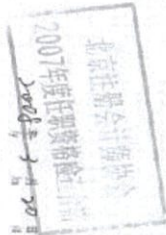 北京注册会计师协会
2007年度任职资格检
2008年3月30日